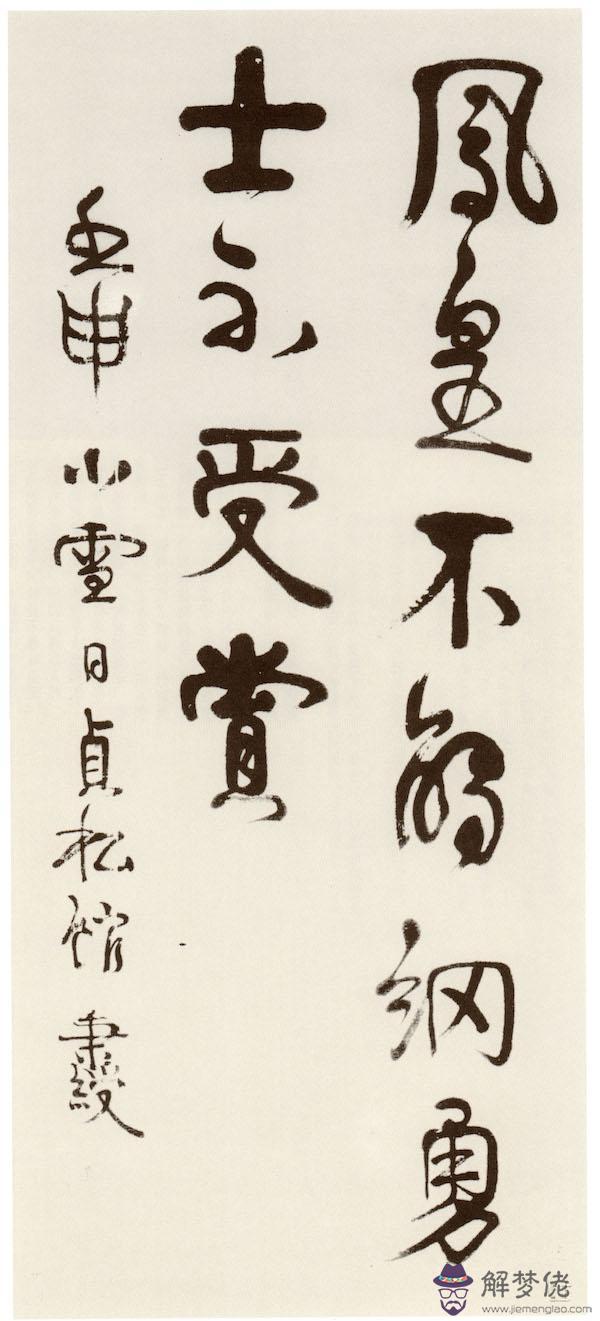 鳳皇不網勇
士受賞
壬申小雪日貞松館
解梦佬
www.jiemenglao.com